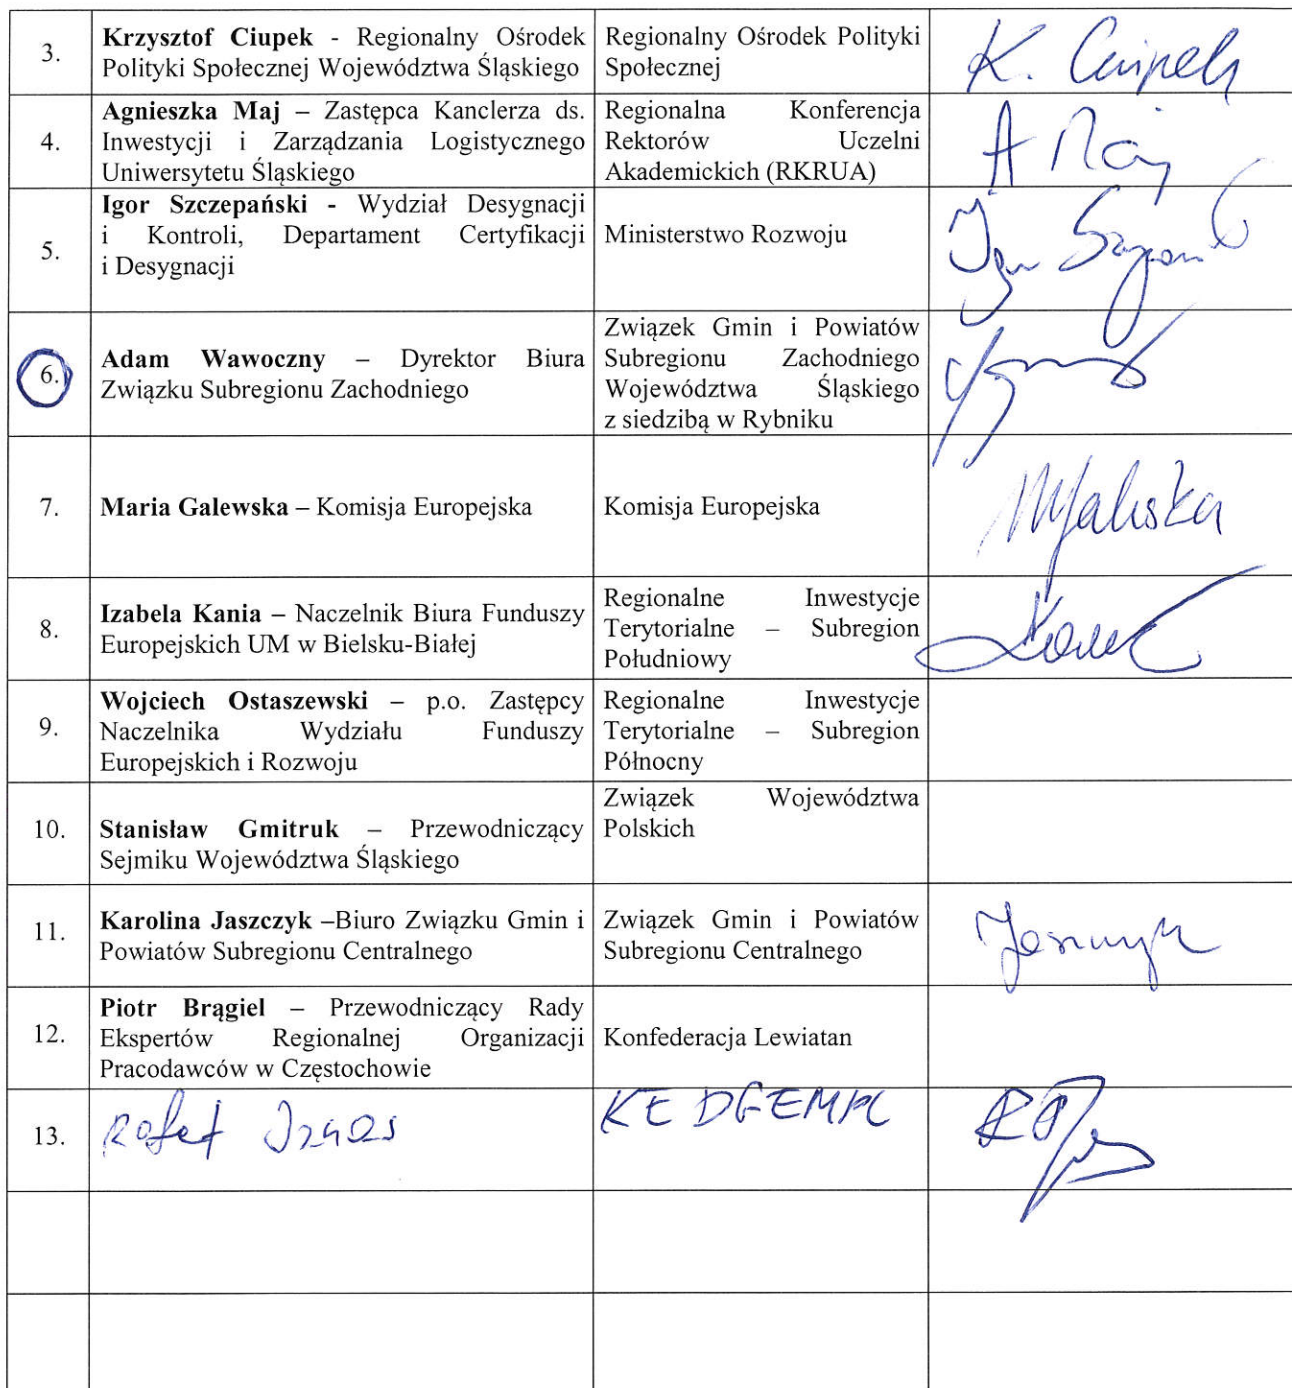 3.
Krzysztof Ciupek - Regionalny Ośrodek
Polityki Społecznej Województwa Śląskiego
Regionalny Ośrodek Polityki
Społecznej
K. Ciupek
4.
Agnieszka Maj – Zastępca Kanclerza ds.
Inwestycji i Zarządzania Logistycznego
Uniwersytetu Śląskiego
Regionalna Konferencja
Rektorów Uczelni
Akademickich (RKRUA)
A Maj
5.
Igor Szczepański - Wydział Desygnacji
i Kontroli, Departament Certyfikacji
i Desygnacji
Ministerstwo Rozwoju
Igor
6.
Adam Wawoczny – Dyrektor Biura
Związku Subregionu Zachodniego
Związek Gmin i Powiatów
Subregionu Zachodniego
Województwa Śląskiego
z siedzibą w Rybniku
7.
Maria Galewska – Komisja Europejska
Komisja Europejska
8.
Izabela Kania – Naczelnik Biura Funduszy
Europejskich UM w Bielsku-Białej
Regionalne Inwestycje
Terytorialne – Subregion
Południowy
9.
Wojciech Ostaszewski – p.o. Zastępcy
Naczelnika Wydziału Funduszy
Europejskich i Rozwoju
Regionalne Inwestycje
Terytorialne – Subregion
Północny
10.
Stanisław Gmitruk – Przewodniczący
Sejmiku Województwa Śląskiego
Związek Województwa
Polskich
11.
Karolina Jaszczyk –Biuro Związku Gmin i
Powiatów Subregionu Centralnego
Związek Gmin i Powiatów
Subregionu Centralnego
Jaszczyk
12.
Piotr Brągiel – Przewodniczący Rady
Ekspertów Regionalnej Organizacji
Pracodawców w Częstochowie
Konfederacja Lewiatan
13.
KE DGEMPL